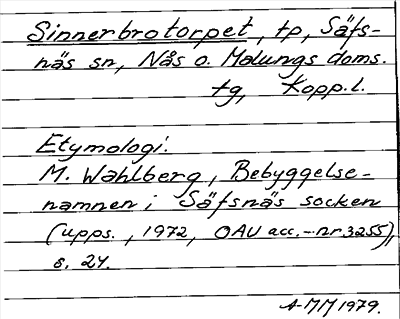 Sinnerbrotorpet, tp, Säfs-
näs sn, Nås o. Malungs doms.
tg, Kopp.l.
Etymologi:
M. Wahlberg, Bebyggelse-
namnen i Säfsnäs socken
(upps., 1972, OAU acc.-nr 3255),
s. 24.
A-MM 1979.